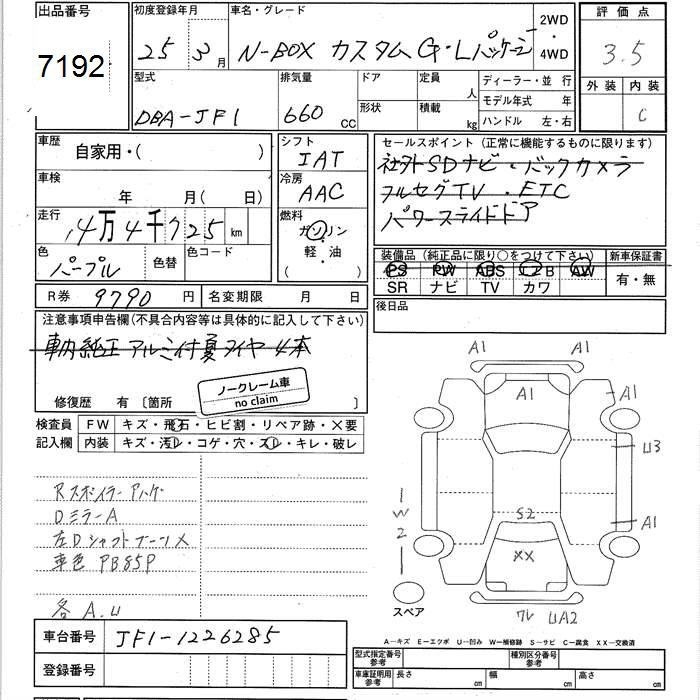 出品番号
7192
初度登録年月
25 3月
車名・グレード
N-BOX カスタム G・Lパッケージ
2WD
・
4WD
評価点
3.5
外装 内装
C
型式
DBA-JF1
排気量
660 CC
ドア
形状
定員
人
積載
kg
ディーラー・並行
モデル年式 年
ハンドル 左・右
車歴
自家用・( )
車検
年 月( 日)
走行
4万4千725km
色
パープル
色替
色コード
シフト
IAT
冷房
AAC
燃料
ガソリン
軽・油
( )
セールスポイント (正常に機能するものに限ります)
社外SDナビ・バックカメラ
フルセグTV・ETC
パワースライドドア
装備品 (純正品に限り○をつけて下さい)
新車保証書
PS PW ABS エアB AW
SR ナビ TV カワ
有・無
R券 9790円
名変期限 月 日
後日品
注意事項申告欄(不具合内容等は具体的に記入して下さい)
車内純正アルミ付夏タイヤ4本
修復歴 有 〔箇所 〕
ノークレーム車
no claim
検査員
記入欄
FW キズ・飛石・ヒビ割・リペア跡・×要
内装 キズ・汚レ・コゲ・穴・スレ・キレ・破レ
Rスポイラーアハゲ
DミラーA
左Dシャフトブーツ×
車色 PB85P
各A.U
A1
A1
A1
A1
U3
A1
S2
XX
1
W
2
スペア
ワレ UA2
A1
A―キズ E―エクボ U―凹み W―補修跡 S―サビ C―腐食 XX―交換済
車台番号
JF1-1226285
登録番号
型式指定番号
参考
種別区分番号
参考
車庫証明用
参考
長さ cm
幅 cm
高さ cm